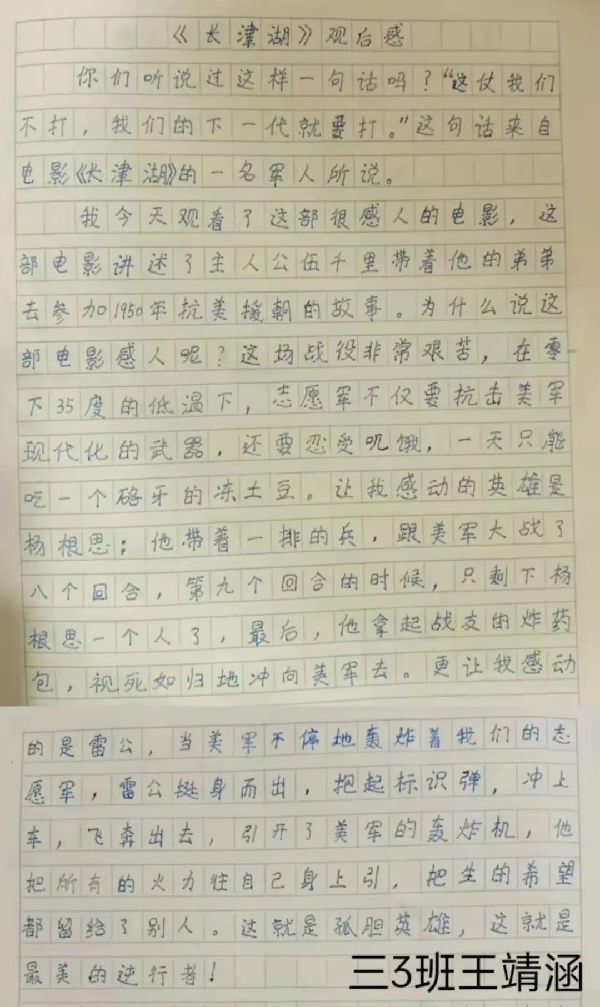 《长津湖》观后感
你们听说过这样一句话吗？“这仗我们
不打，我们的下一代就要打。”这句话来自
电影《长津湖》的一名军人所说。
我今天观看了这部很感人的电影，这
部电影讲述了主人公伍千里带着他的弟弟
去参加1950年抗美援朝的故事。为什么说这
部电影感人呢？这场战役非常艰苦，在零
下35度的低温下，志愿军不仅要抗击美军
现代化的武器，还要忍受饥饿，一天只能
吃一个硌牙的冻土豆。让我感动的英雄是
杨根思；他带着一排的兵，跟美军大战了
八个回合，第九个回合的时候，只剩下杨
根思一个人了，最后，他拿起战友的炸药
包，视死如归地冲向美军去。更让我感动
的是雷公，当美军不停地轰炸着我们的志
愿军，雷公挺身而出，抱起标识弹，冲上
车，飞奔出去，引开了美军的轰炸机，他
把所有的火力往自己身上引，把生的希望
都留给了别人。这就是孤胆英雄，这就是
最美的逆行者！
三3班王靖涵